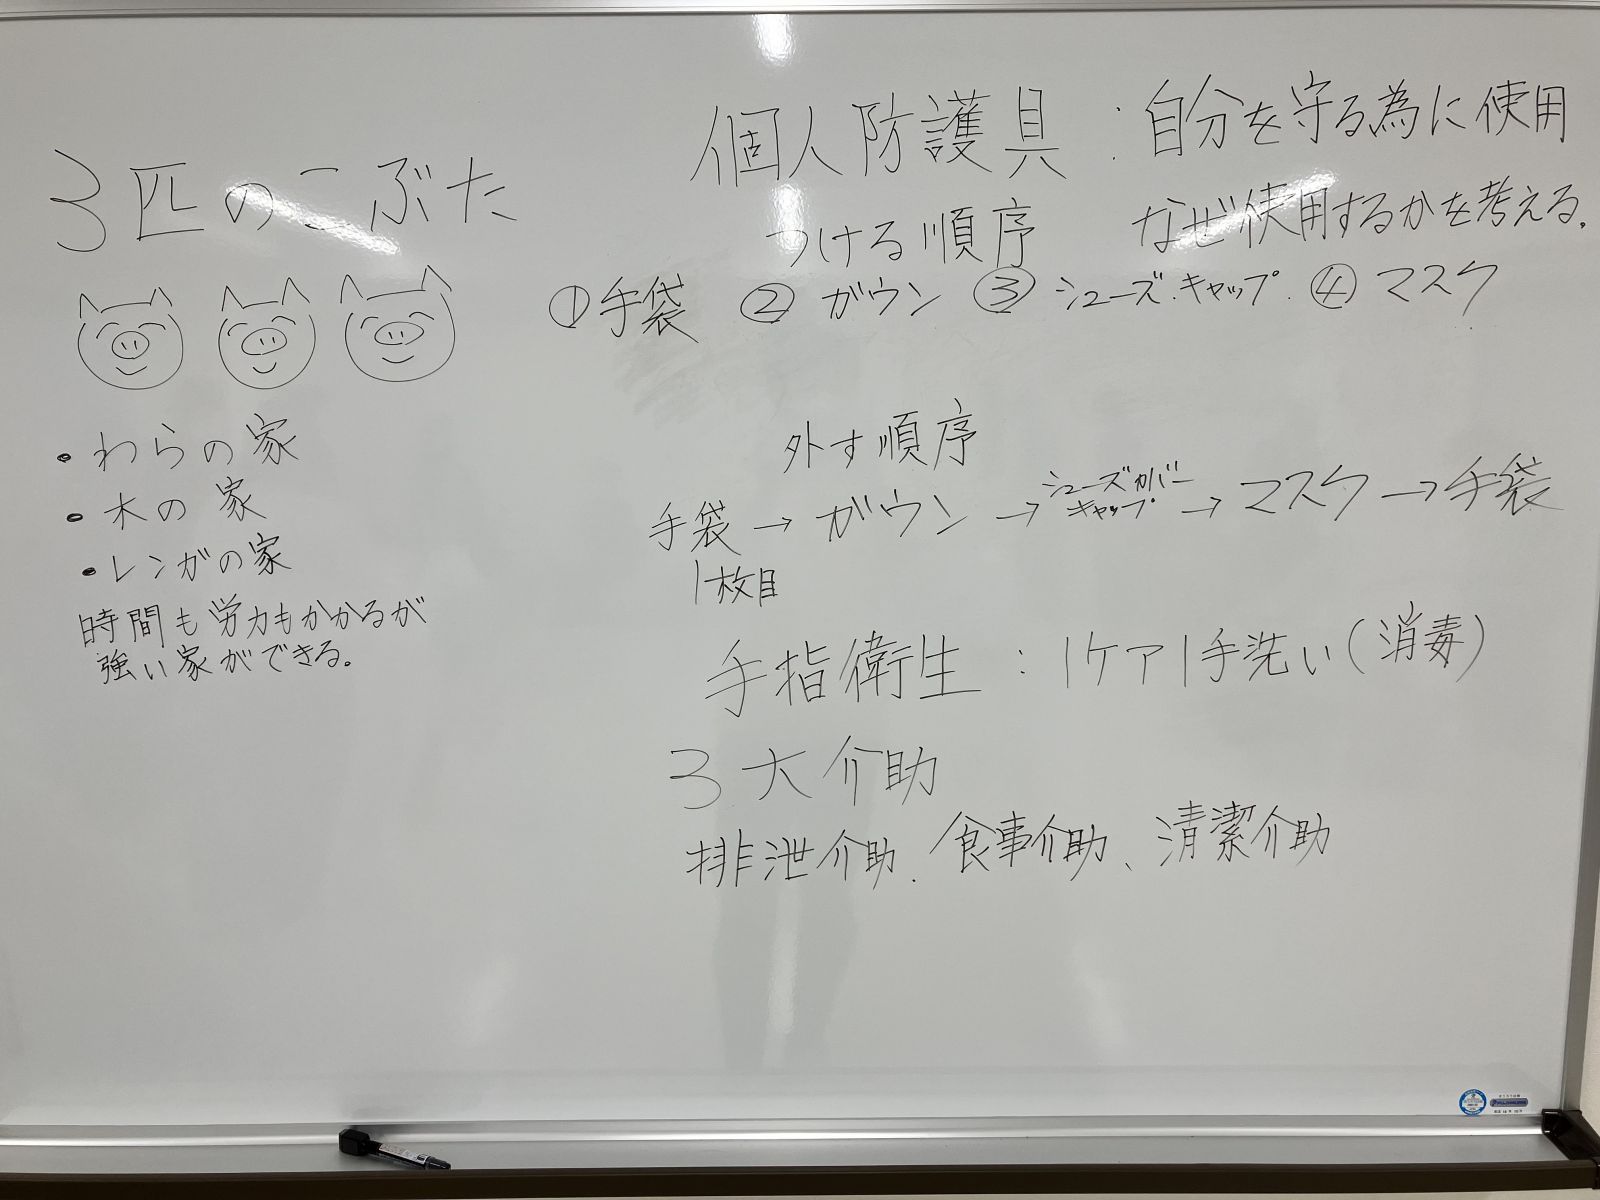 3匹のこぶた
・わらの家
・木の家
・レンガの家
時間も労力もかかるが
強い家ができる。
個人防護具：自分を守る為に使用
なぜ使用するかを考える。
つける順序
①手袋 ②ガウン ③シューズ・キャップ ④マスク
外す順序
手袋→ガウン→シューズカバーキャップ→マスク→手袋
1枚目
手指衛生：1ケア1手洗い(消毒)
3大介助
排泄介助、食事介助、清潔介助